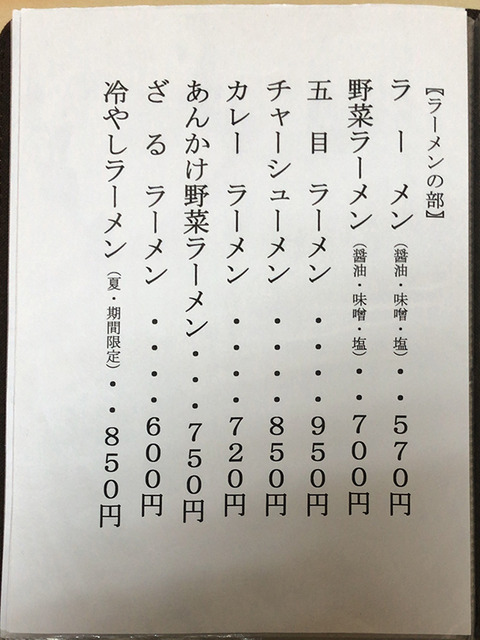 【ラーメンの部】
ラーメン（醤油・味噌・塩）・・570円
野菜ラーメン（醤油・味噌・塩）・・700円
五目ラーメン・・・・950円
チャーシューメン・・・・850円
カレーラーメン・・・・720円
あんかけ野菜ラーメン・・・750円
ざるラーメン・・・・600円
冷やしラーメン（夏・期間限定）・・850円